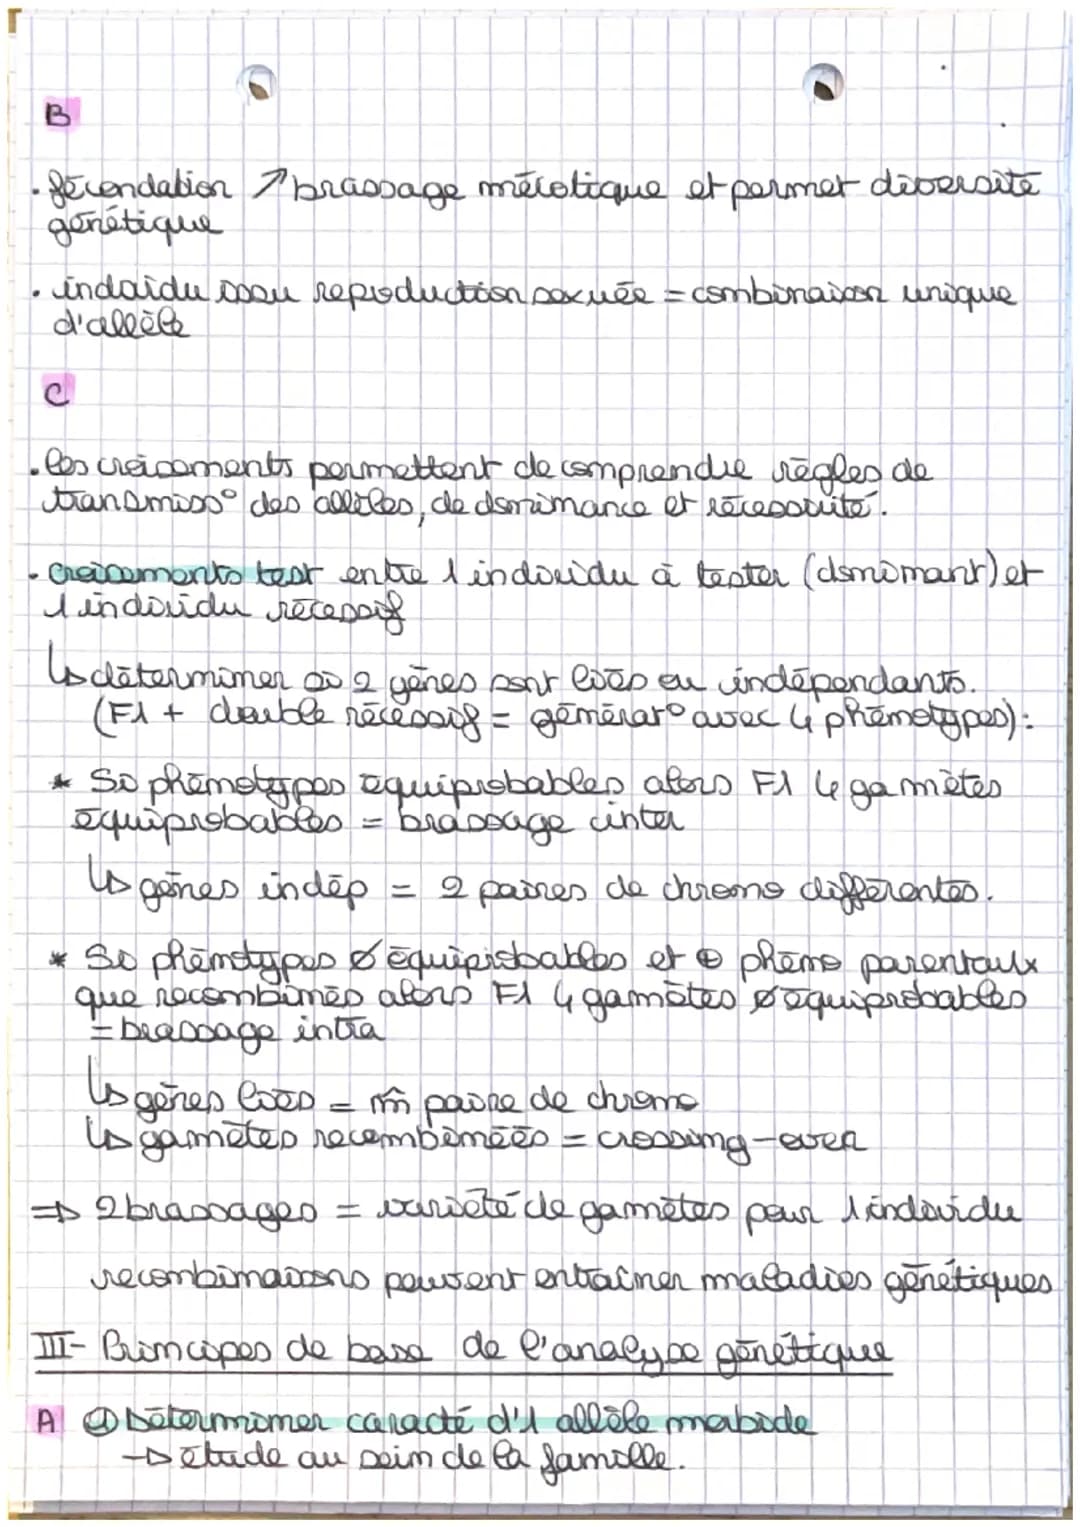 B
. fécondation ↗ brassage méiotique et permet diversité
génétique
. individu issu reproduction sexuée = combinaison unique
d'allèle
C
. les croisements permettent de comprendre règles de
transmiss° des allèles, de dominance et récessivité.
. croisements test entre 1 individu à tester (dominant) et
1 individu récessif
↳ déterminer si 2 gènes sont liés ou indépendants.
(F1 + double récessif = générat° avec 4 phénotypes) :
* Si phénotypes équiprobables alors F1 4 gamètes
équiprobables = brassage inter
↳ gènes indép = 2 paires de chromo différentes.
* Si phénotypes Ø équiprobables et ⊕ phéno parentaux
que recombinés alors F1 4 gamètes Ø équiprobables
= brassage intra
↳ gènes liés = m̂ paire de chromo
↳ gamètes recombinées = crossing-over
⇒ 2 brassages = variété de gamètes pour 1 individu
recombinaisons peuvent entraîner maladies génétiques
III- Principes de base de l'analyse génétique
A ① Déterminer caracté d'1 allèle morbide
→ étude au sein de la famille.